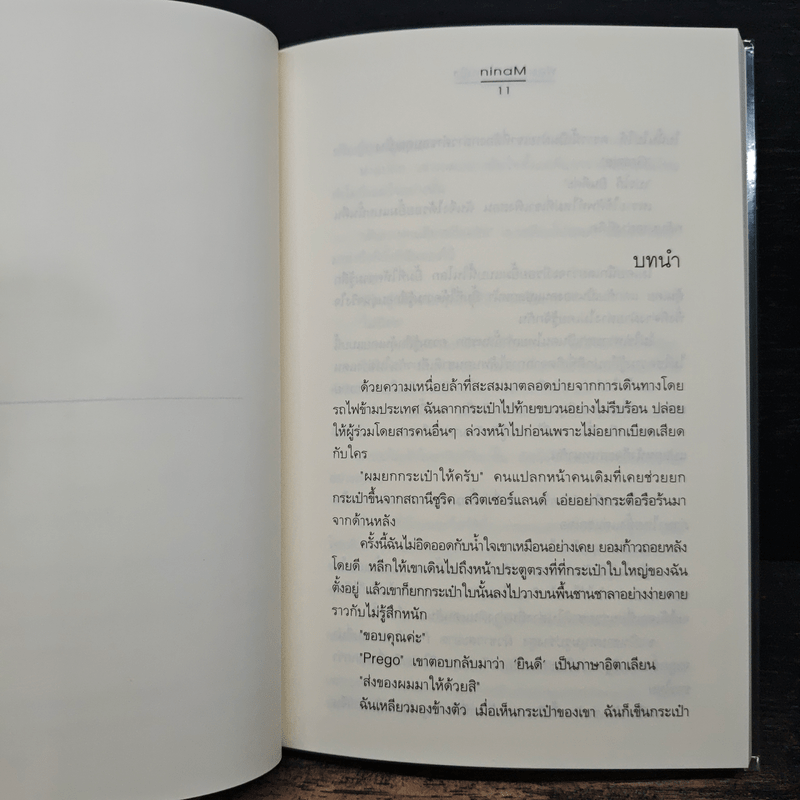 Manin
11
บทนำ
ด้วยความเหนื่อยล้าที่สะสมมาตลอดบ่ายจากการเดินทางโดย
รถไฟข้ามประเทศ ฉันลากกระเป๋าไปท้ายขบวนอย่างไม่รีบร้อน ปล่อย
ให้ผู้ร่วมโดยสารคนอื่นๆ ล่วงหน้าไปก่อนเพราะไม่อยากเบียดเสียด
กับใคร
"ผมยกกระเป๋าให้ครับ" คนแปลกหน้าคนเดิมที่เคยช่วยยก
กระเป๋าขึ้นจากสถานีซูริค สวิตเซอร์แลนด์ เอ่ยอย่างกระตือรือร้นมา
จากด้านหลัง
ครั้งนี้ฉันไม่อิดออดกับน้ำใจเขาเหมือนอย่างเคย ยอมก้าวถอยหลัง
โดยดี หลีกให้เขาเดินไปถึงหน้าประตูตรงที่ที่กระเป๋าใบใหญ่ของฉัน
ตั้งอยู่ แล้วเขาก็ยกกระเป๋าใบนั้นลงไปวางบนพื้นชานชาลาอย่างง่ายดาย
ราวกับไม่รู้สึกหนัก
"ขอบคุณค่ะ"
"Prego" เขาตอบกลับมาว่า 'ยินดี' เป็นภาษาอิตาเลียน
"ส่งของผมมาให้ด้วยสิ"
ฉันเหลียวมองข้างตัว เมื่อเห็นกระเป๋าของเขา ฉันก็เข็นกระเป๋า